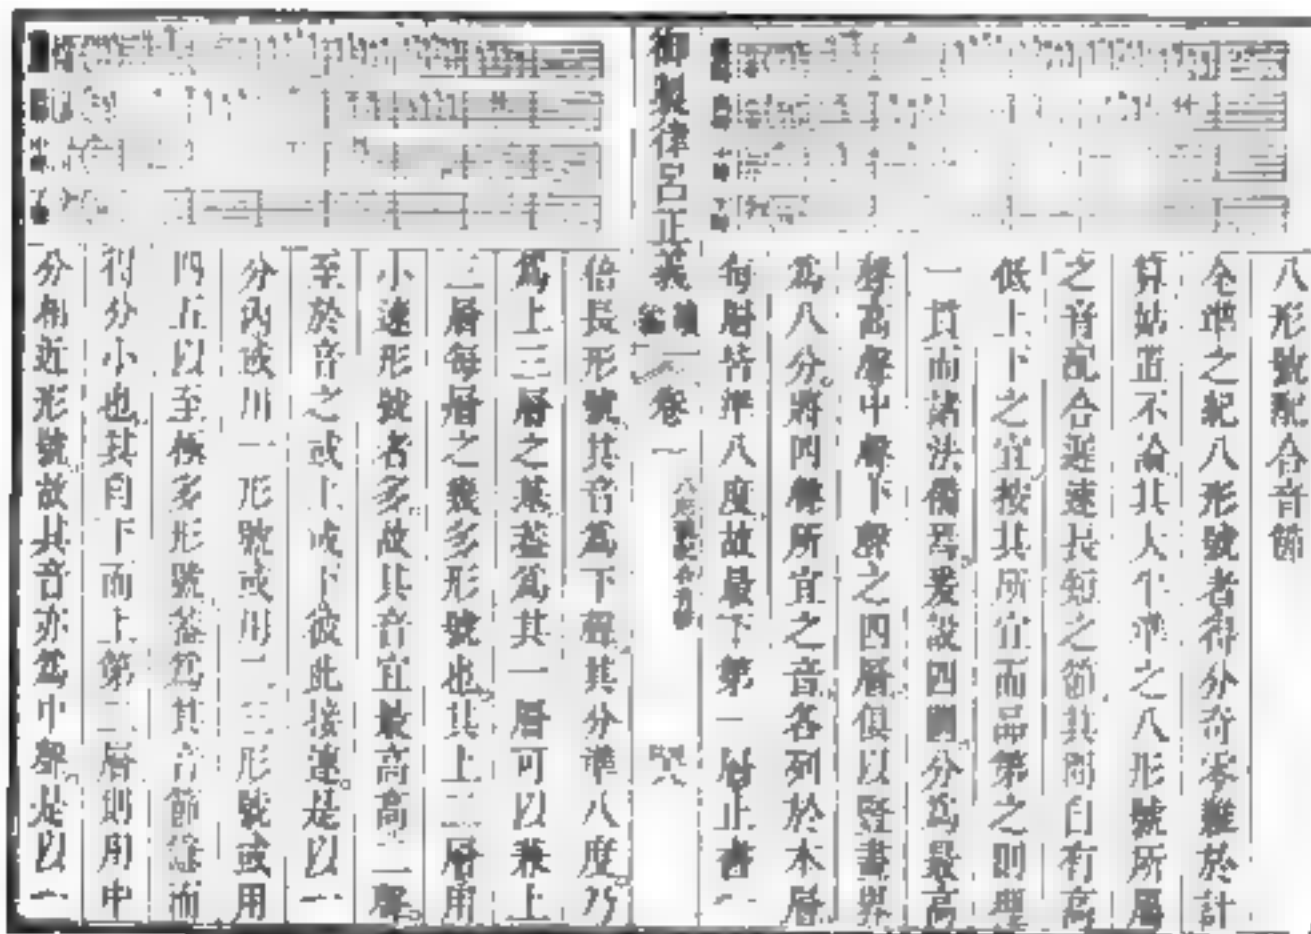 八形號配合音節
全準之紀八形號者得分奇零難於計
算姑置不論其大半準之八形號所屬
之音配合遲速長短之節其間自有高
低上下之宜按其所宜而品第之則理
一貫而諸法備焉爰設四圖分為最高
聲高聲中聲下聲之四層俱以豎畫界
為八分將四聲所宜之音各列於本層
每層皆準八度故最下第一層止書一
御製律呂正義 續編 卷一 八形號配合音節
倍長形號其音為下聲其分準八度乃
為上三層之基蓋為其一層可以兼上
三層每層之幾多形號也其上二層用
小速形號者多故其音宜最高高二聲
至於音之或上或下彼此接連是以一
分內或用一形號或用二三形號或用
四五以至極多形號蓋為其音節雖而
得分小也其自下而上第二層則用中
分相近形號故其音亦為中聲是以一